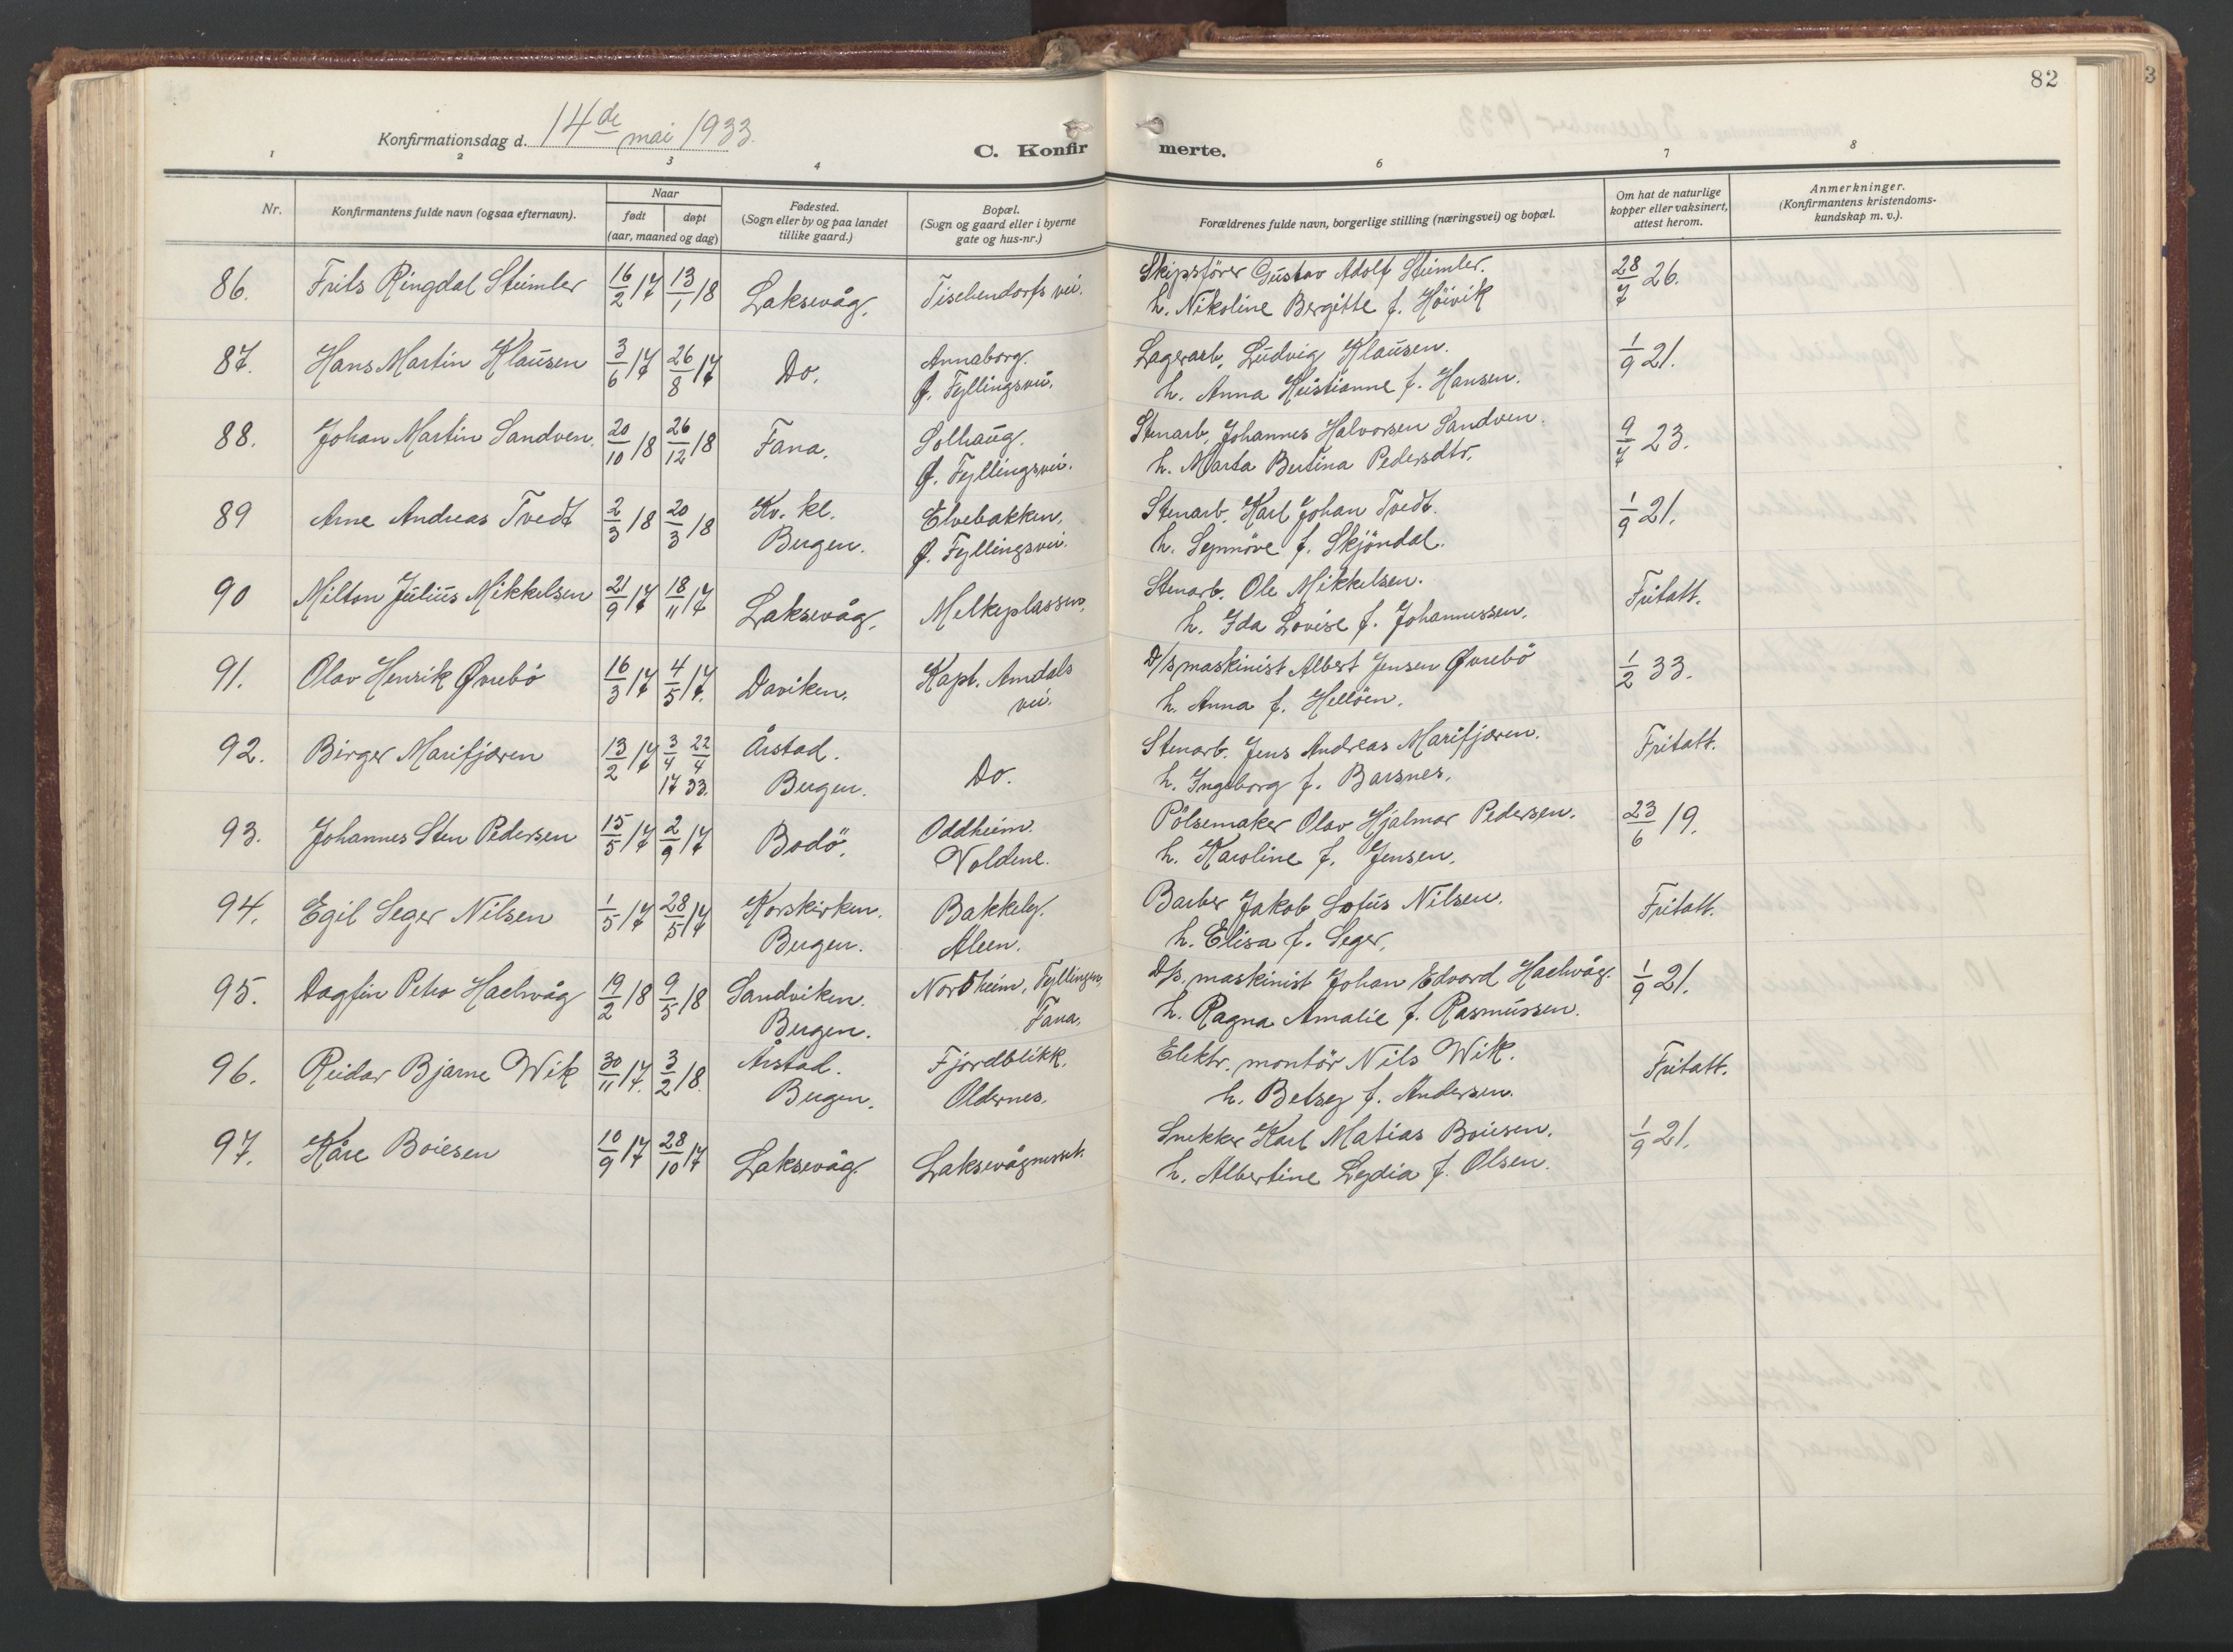 82
Konfirmationsdag d. 14de mai 1933.
C. Konfirmerte.
1 2 3 4 6 7 8
Nr.
Konfirmantens fulde navn (ogsaa efternavn).
Naar
født døpt
(aar, maaned og dag)
Fødested.
(Sogn eller by og paa landet
tillike gaard.)
Bopæl.
(Sogn og gaard eller i byerne
gate og hus-nr.)
Forældrenes fulde navn, borgerlige stilling (næringsvei) og bopæl.
Om hat de naturlige
kopper eller vaksinert,
attest herom.
Anmerkninger.
(Konfirmantens kristendoms-
kundskap m. v.).
86. Frits Ringdal Stümler 16/2 17 13/1 18 Laksevåg. Tischendorfs vei. Skipsfører Gustav Adolf Stümler. 28/7 26.
h. Nikoline Bergitte f. Höivik
87. Hans Martin Klausen 3/6 17 26/8 17 Do. Annaborg. Lagerarb. Ludvig Klausen. 1/9 21.
Ø. Fyllingsvei. h. Anna Kristianne f. Hansen.
88. Johan Martin Sandven. 20/10 18 26/12 18 Fana. Solhaug. Stenarb. Johannes Halvorsen Sandven. 9/7 23.
Ø. Fyllingsvei. h. Marta Bertina Pedersdtr.
89 Arne Andreas Tvedt 2/3 18 20/3 18 Kv. kl. Elvebakken, Stenarb. Karl Johan Tvedt. 1/9 21.
Bergen. Ø. Fyllingsvei. h. Synnöve f. Skjöndal.
90 Milton Julius Mikkelsen 21/9 17 18/11 17 Laksevåg. Melkeplassen. Stenarb. Ole Mikkelsen. Fritatt.
h. Ida Lovise f. Johannessen.
91. Olav Henrik Øvrebö 16/3 17 4/5 17. Daviken. Kapt. Amdals D/s maskinist Albert Jensen Øvrebö 1/2 33.
vei. h. Anna f. Hellöen.
92. Birger Marifjæren 13/2 17 3/4 22/4 Årstad. Stenarb. Jens Andreas Marifjæren. Fritatt.
17 33. Bergen. Do. h. Ingeborg f. Barsnes.
93. Johannes Sten Pedersen 15/5 17 2/9 17 Bodö. Oddheim. Pölsemaker Olav Hjalmar Pedersen. 23/6 19.
Voldene. h. Karoline f. Jensen.
94. Egil Seger Nilsen 1/5 17 28/5 17 Korskirken. Bakkely. Barber Jakob Sofus Nilsen. Fritatt.
Bergen. Aleen. h. Elisa f. Seger.
95. Dagfin Petro Haelwåg 19/2 18 9/5 18 Sandviken. Nordheim, Fyllingen, D/s. maskinist Johan Edvard Haelwåg. 1/9 21.
Bergen. Fana. h. Ragna Amalie f. Rasmussen.
96. Reidar Bjarne Wik 30/11 17. 3/2 18. Årstad. Fjordblikk. Elektr. montör Nils Wik. Fritatt.
Bergen. Oldernes. h. Betsey f. Andersen.
97. Kåre Boiesen 10/9 17 28/10 17 Laksevåg. Laksevågnesset. Snekker Karl Matias Boiesen. 1/9 21.
h. Albertine Lydia f. Olsen.